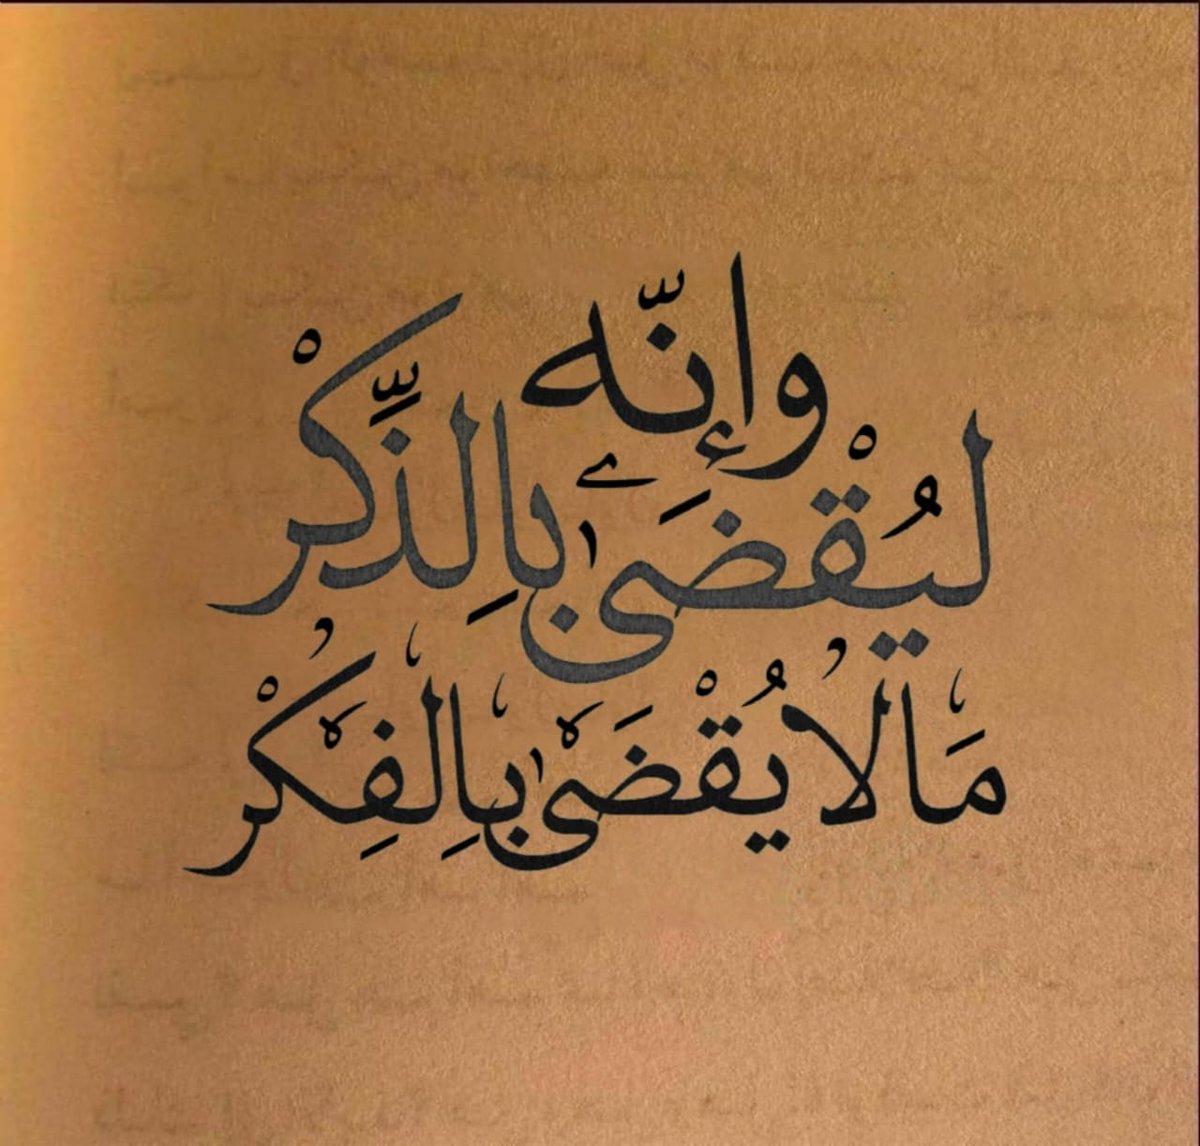 وإنّه
ليُقْضَىٰ بالِذِّكرْ
مَالا يُقْضَىٰ بِالِفِكَرْ